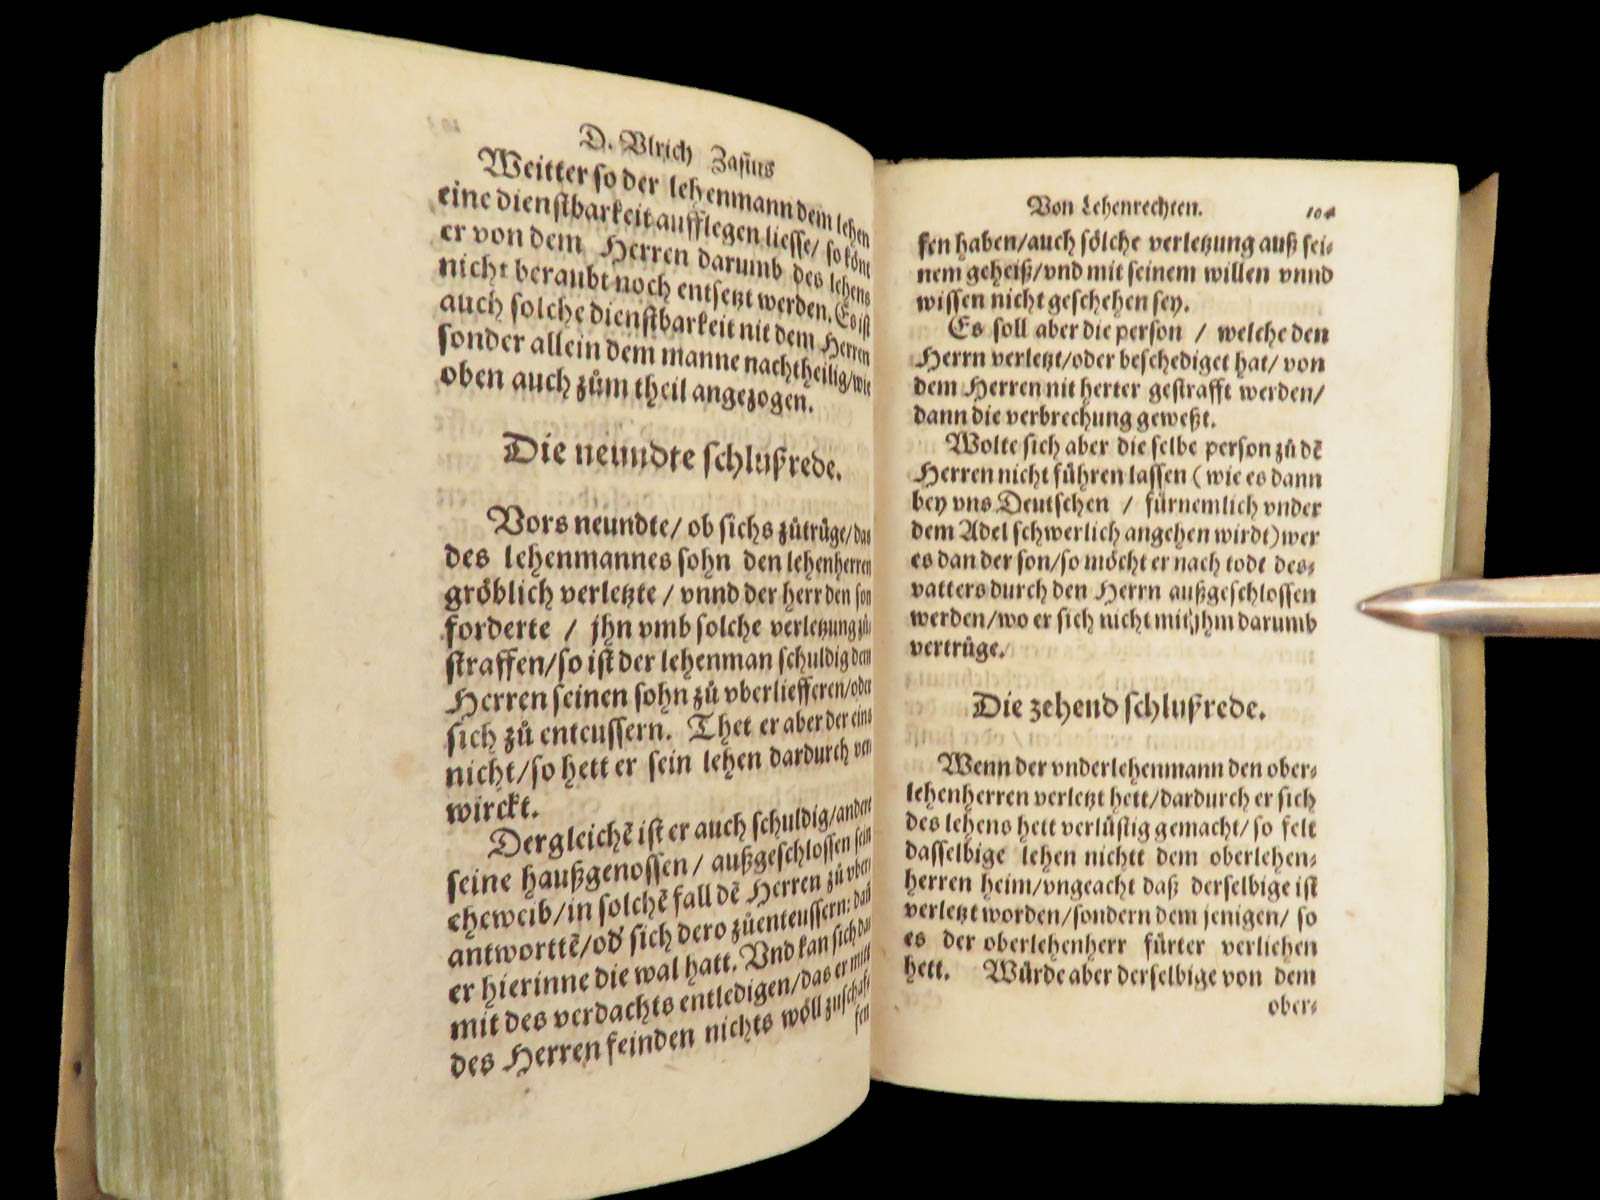 D. Vlrich Zasius
Weitter so der lehenmann dem lehen
eine dienstbarkeit aufflegen liesse/ so könt
er von dem Herren darumb des lehens
nicht beraubt noch entsetzt werden. Es ist
auch solche dienstbarkeit nit dem Herren
sonder allein dem manne nachtheilig/wie
oben auch zům theil angezogen.
Die neundte schlußrede.
Vors neundte/ ob sichs zůtrüge/das
des lehenmannes sohn den lehenherren
gröblich verletzte / vnnd der herr den son
forderte / jhn vmb solche verletzung zů
straffen/so ist der lehenman schuldig dem
Herren seinen sohn zů vberliefferen/oder
sich zů enteussern. Thet er aber der eins
nicht/so hett er sein lehen dardurch ver
wirckt.
Dergleichē ist er auch schuldig/andere
seine haußgenossen/ außgeschlossen sein
eheweib/in solchē fall dē Herren zů vber
antworttē/od' sich dero zůenteussern: dañ
er hierinne die wal hatt. Vnd kan sich das
mit des verdachts entledigen/das er mitt
des Herren feinden nichts wöll zuschaf-
fen
Von Lehenrechten. 104
fen haben/auch sölche verletzung auß sei-
nem geheiß/vnd mit seinem willen vnnd
wissen nicht geschehen sey.
Es soll aber die person / welche den
Herrn verletzt/oder beschediget hat/ von
dem Herren nit herter gestrafft werden/
dann die verbrechung gewest.
Wolte sich aber die selbe person zů dē
Herren nicht führen lassen ( wie es dann
bey vns Deutschen / fürnemlich vnder
dem Adel schwerlich angehen wirdt) wer
es dan der son/so möcht er nach todt des-
vatters durch den Herrn außgeschlossen
werden/wo er sich nicht mit jhm darumb
vertrüge.
Die zehend schlußrede.
Wenn der vnderlehenmann den ober-
lehenherren verletzt hett/dardurch er sich
des lehens hett verlüstig gemacht/ so felt
dasselbige lehen nichtt dem oberlehen-
herren heim/vngeacht daß derselbige ist
verletzt worden/sondern dem jenigen/ so
es der oberlehenherr fürter verliehen
hett. Würde aber derselbige von dem
ober-